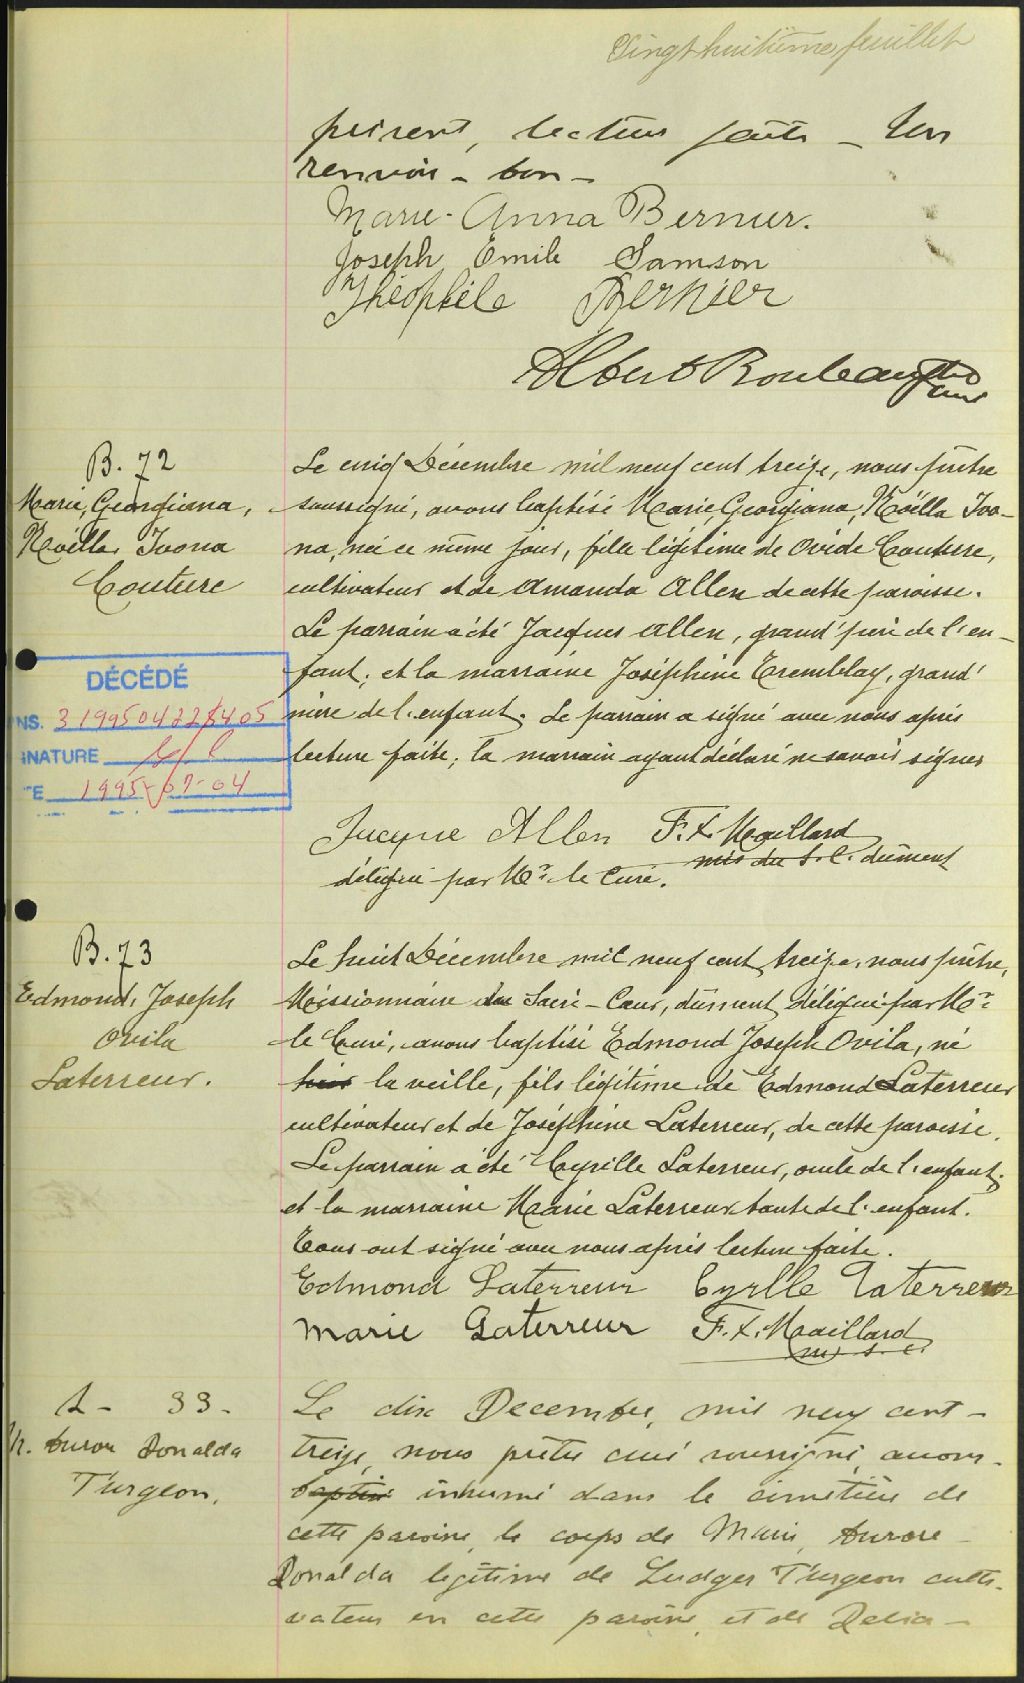 Vingt huitième feuillet
présent, lecture faite – Un
renvoi – bon –
Marie-Anna Bernier.
Joseph Emile Samson
Théophile Bernier
Albert Rouleau ptre
curé
B. 72
Marie, Georgiana,
Noëlla, Ivona
Couture
Le cinq Décembre mil neuf cent treize, nous prêtre
soussigné, avons baptisé Marie, Georgiana, Noëlla Ivo-
na, née ce même jour, fille légitime de Ovide Couture,
cultivateur et de Amanda Allen de cette paroisse.
Le parrain a été Jacques Allen, grand'père de l'en-
fant; et la marraine Joséphine Tremblay, grand'
mère de l'enfant. Le parrain a signé avec nous après
lecture faite; la marrain ayant déclaré ne savoir signer
DÉCÉDÉ
NS. 3199504228405
GNATURE
TE 1995-07-04
Jacque Allen F. X. Maillard
mis du S. C. dûment
délégué par Mr le Curé.
B. 73
Edmond, Joseph
Ovila
Laterreur.
Le huit Décembre mil neuf cent treize, nous prêtre,
Missionnaire du Sacré-Cœur, dûment délégué par Mr
le Curé, avons baptisé Edmond Joseph Ovila, né
hier la veille, fils légitime de Edmond Laterreur
cultivateur et de Joséphine Laterreur, de cette paroisse.
Le parrain a été Cyrille Laterreur, oncle de l'enfant;
et la marraine Marie Laterreur tante de l'enfant.
Tous ont signé avec nous après lecture faite.
Edmond Laterreur Cyrlle Laterreur
Marie Laterreur F. X. Maillard
m. s. c.
S – 33 –
M. Auror Donalda
Turgeon,
Le dix Decembre, mil neuf cent –
treize, nous prêtre curé soussigné, avons
baptisé inhumé dans le cimetière de
cette paroisse, le corps de Marie, Aurore –
Donalda légitime de Ludger Turgeon culti-
vateur en cette paroisse, et de Delia –